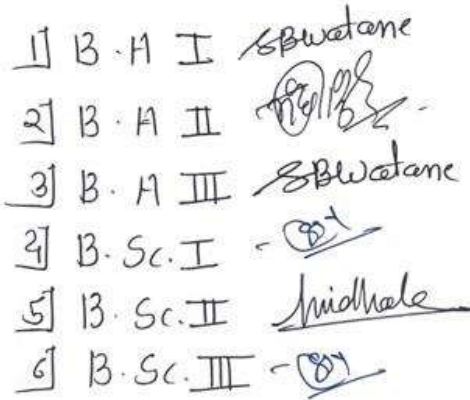 1] B.A I SBWatane
2] B.A II
3] B.A III SBWatane
4] B.Sc. I -
5] B.Sc. II
6] B.Sc. III -